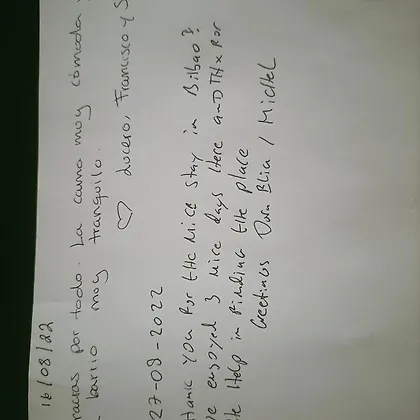 16/08/22
racias por todo. La cama muy cómoda y
barrio muy tranquilo.
♡ Lucero, Francisco y S
27-08-2022
thank you for the nice stay in Bilbao!
e enjoyed 3 nice days Here anD THx for
e Help in Finding the place
Greetings / Michel